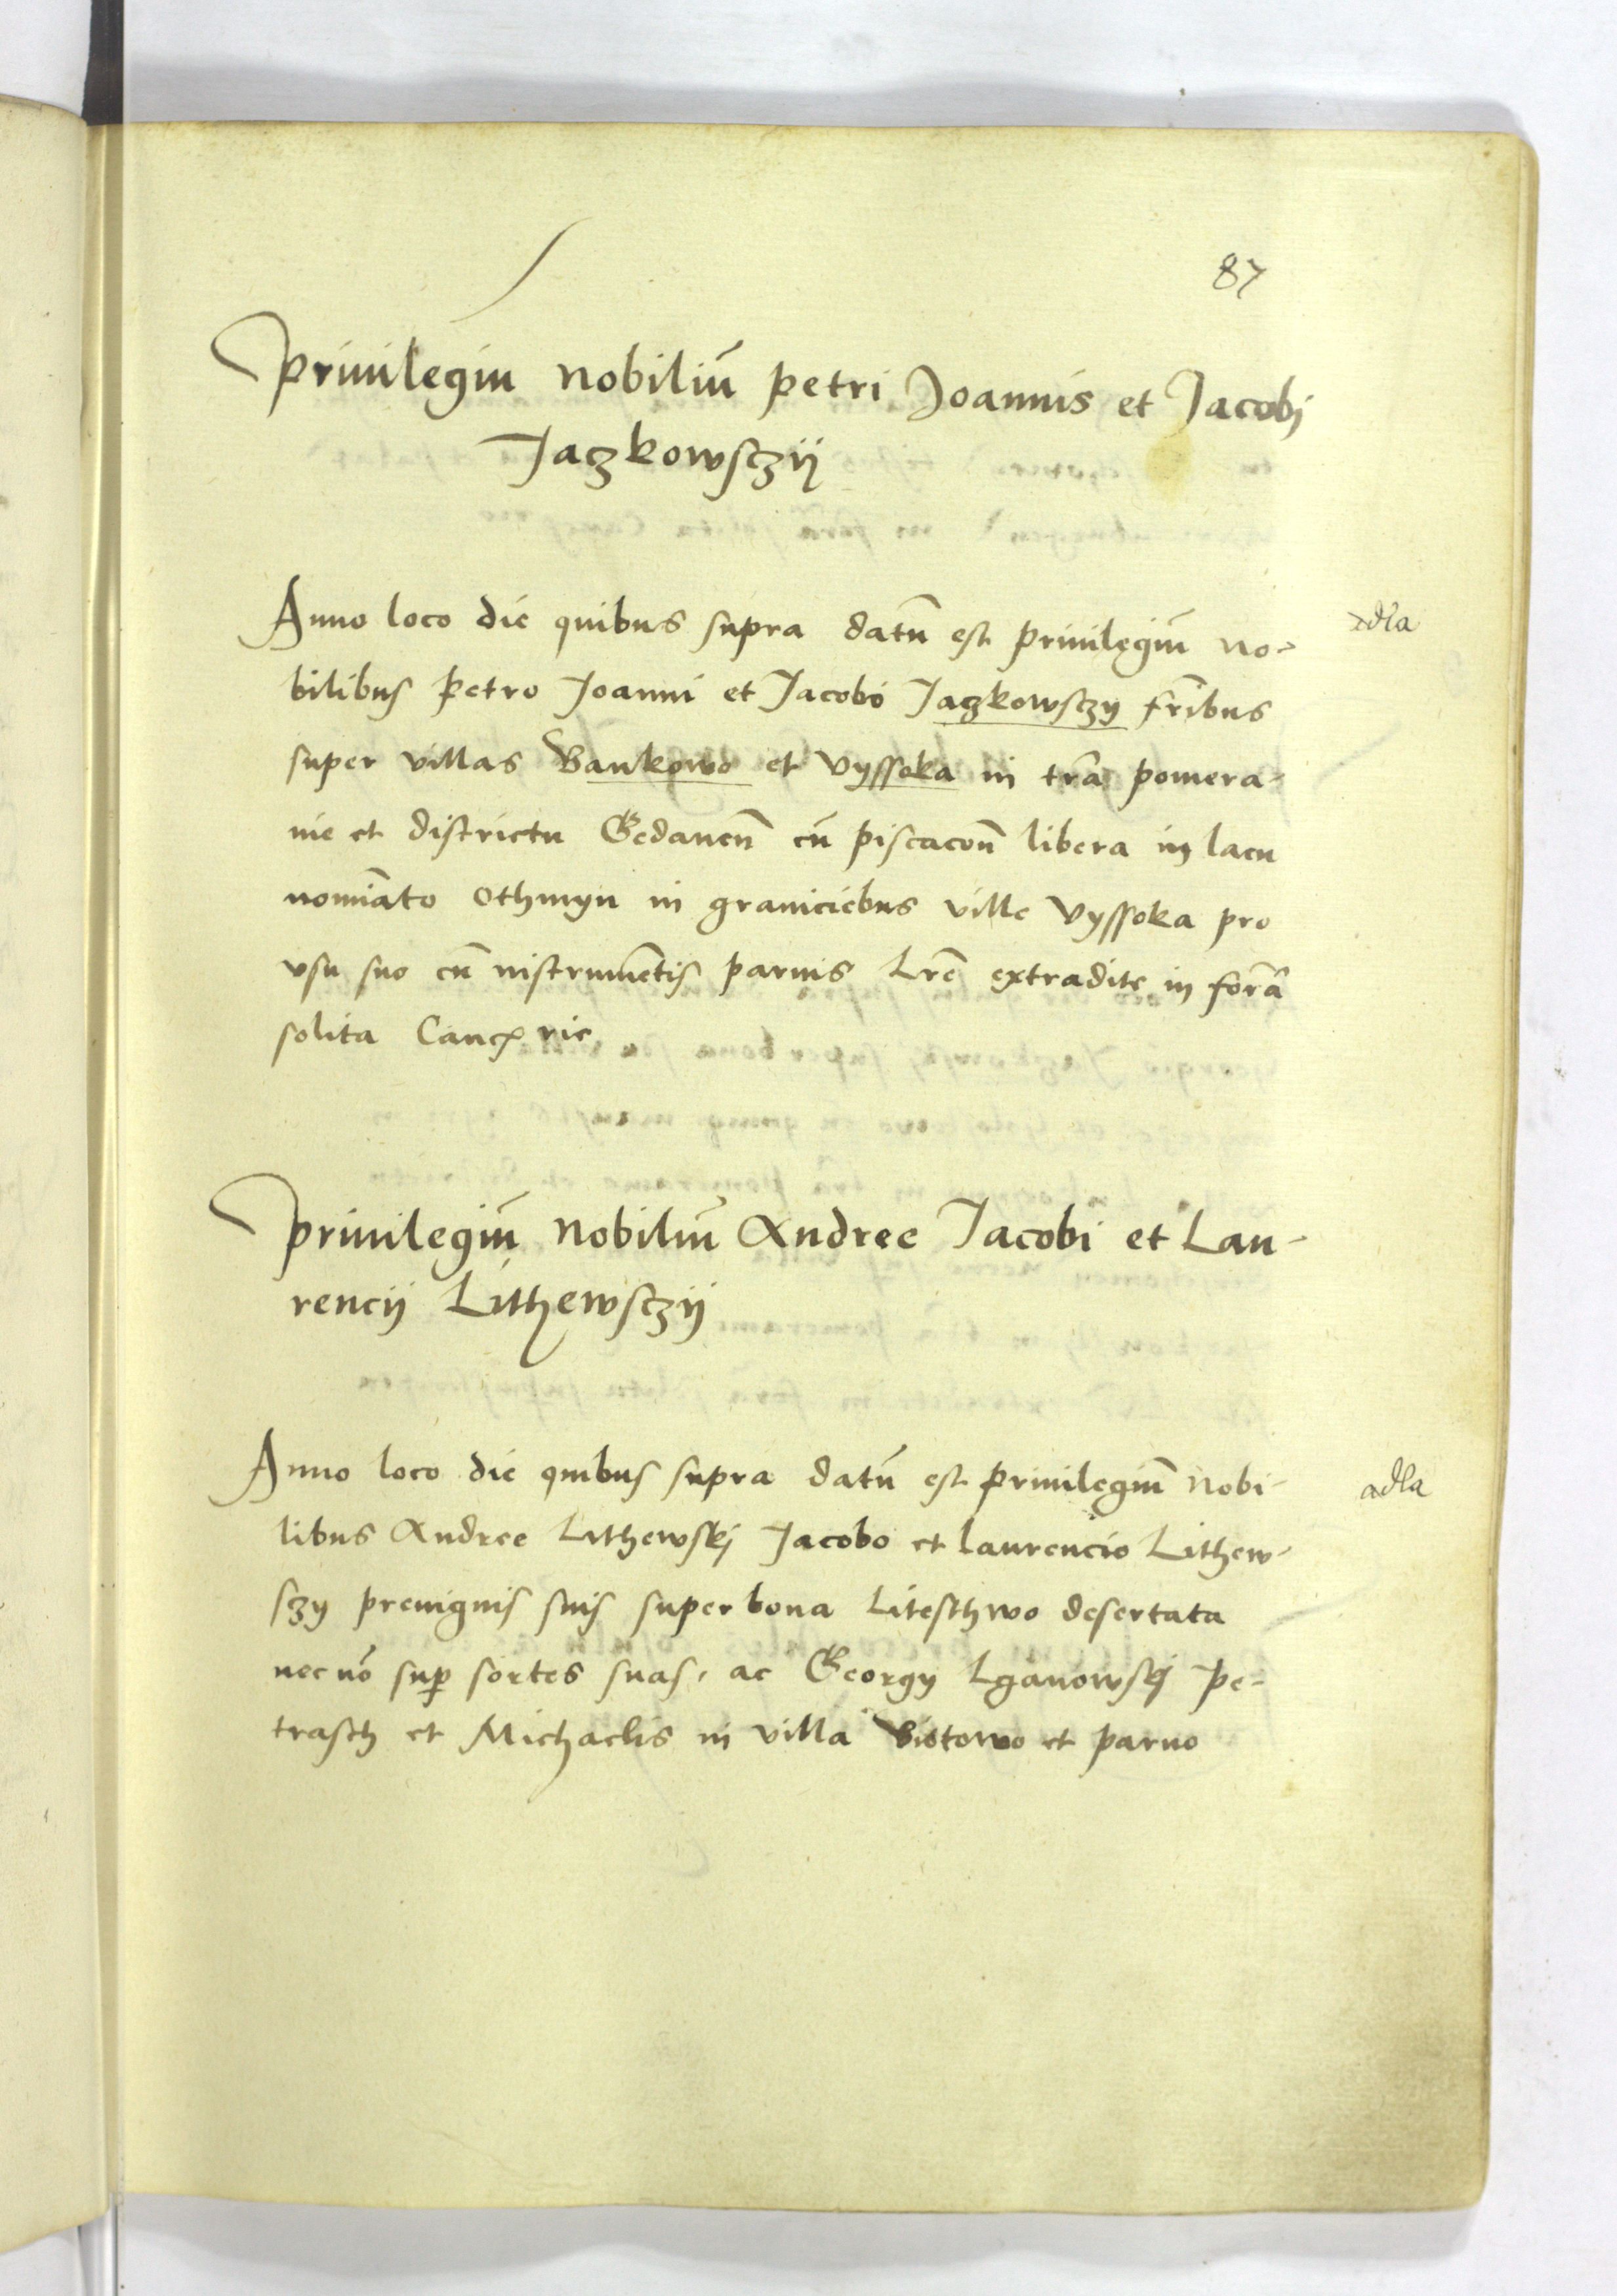 87
Priuilegiu nobiliū petri Joannis et Jacobj
Jaczkowsczÿ
Anno loco die quibus supra datū est priuilegiū no-
adła
bilibus petro Joanni et Jacobo Jaczkowsczy frībus
super villas Bankowo et Vyssoka in trā pomera-
nie et districtu Gedaneñ cū piscacoñ libera in lacu
nomīato Othmyn in graniciebus ville Vyssoka pro
vsu suo cū instrumētis paruis Lrē extradite in forā
solita Canc rie
Priuilegiū nobiliū Andree Jacobi et Lau-
rencij Lithewsczÿ
Anno loco die quibus supra datū est priuilegiū nobi-
adła
libus Andree Lithewskj Jacobo et laurencio Lithew-
sczy preuignis suis super bona Liteschwo desertata
nec nō sup sortes suas, ac Georgy Lganowskj pe-
trasch et Michaelis in villa Bistowo et paruo